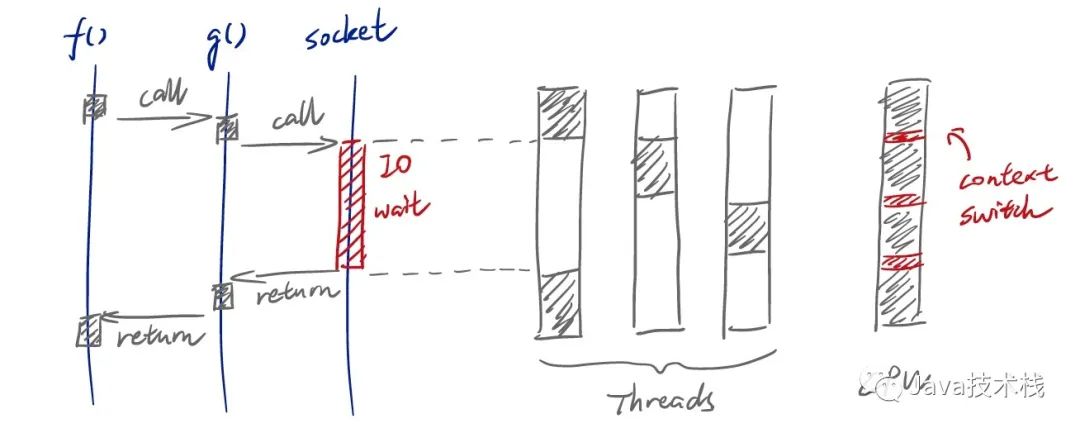 f()
g()
socket
call
call
IO
wait
return
return
Threads
context
switch
CPU
Java技术栈